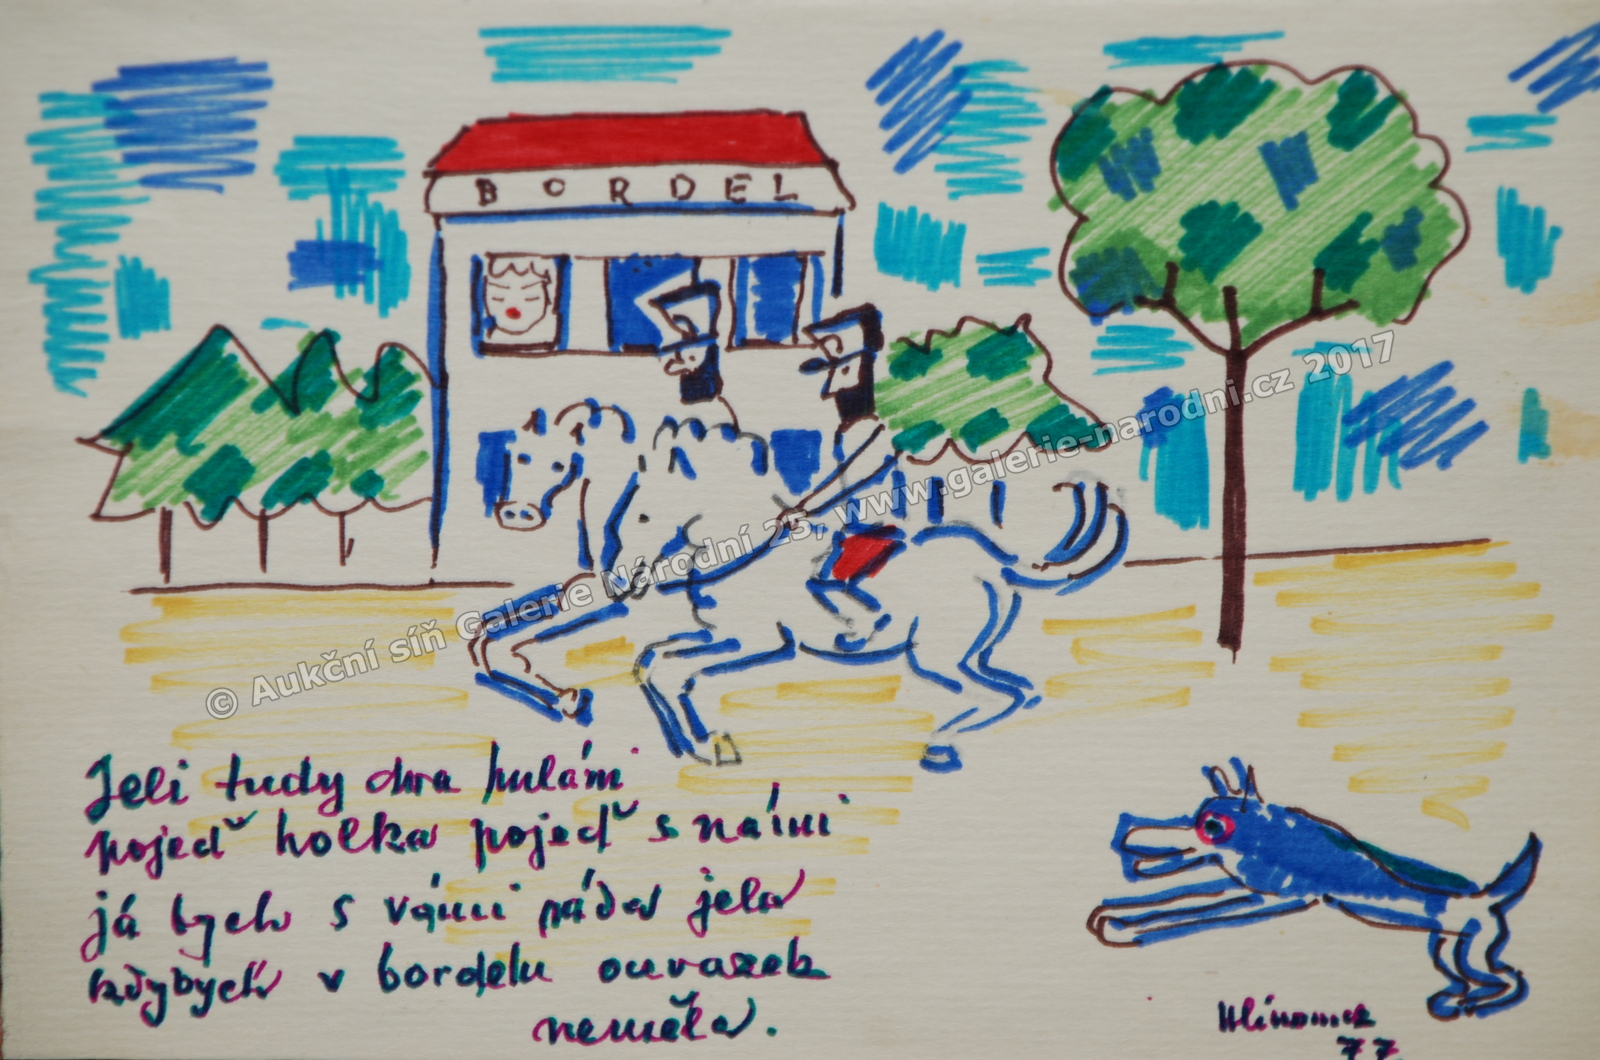 BORDEL
© Aukční síň Galerie Národní 25, www.galerie-narodni.cz 2017
Jeli tudy dva huláni
pojeď holka pojeď s námi
já bych s vámi ráda jela
kdybych v bordelu ouvazek
neměla.
Hlinomaz
77